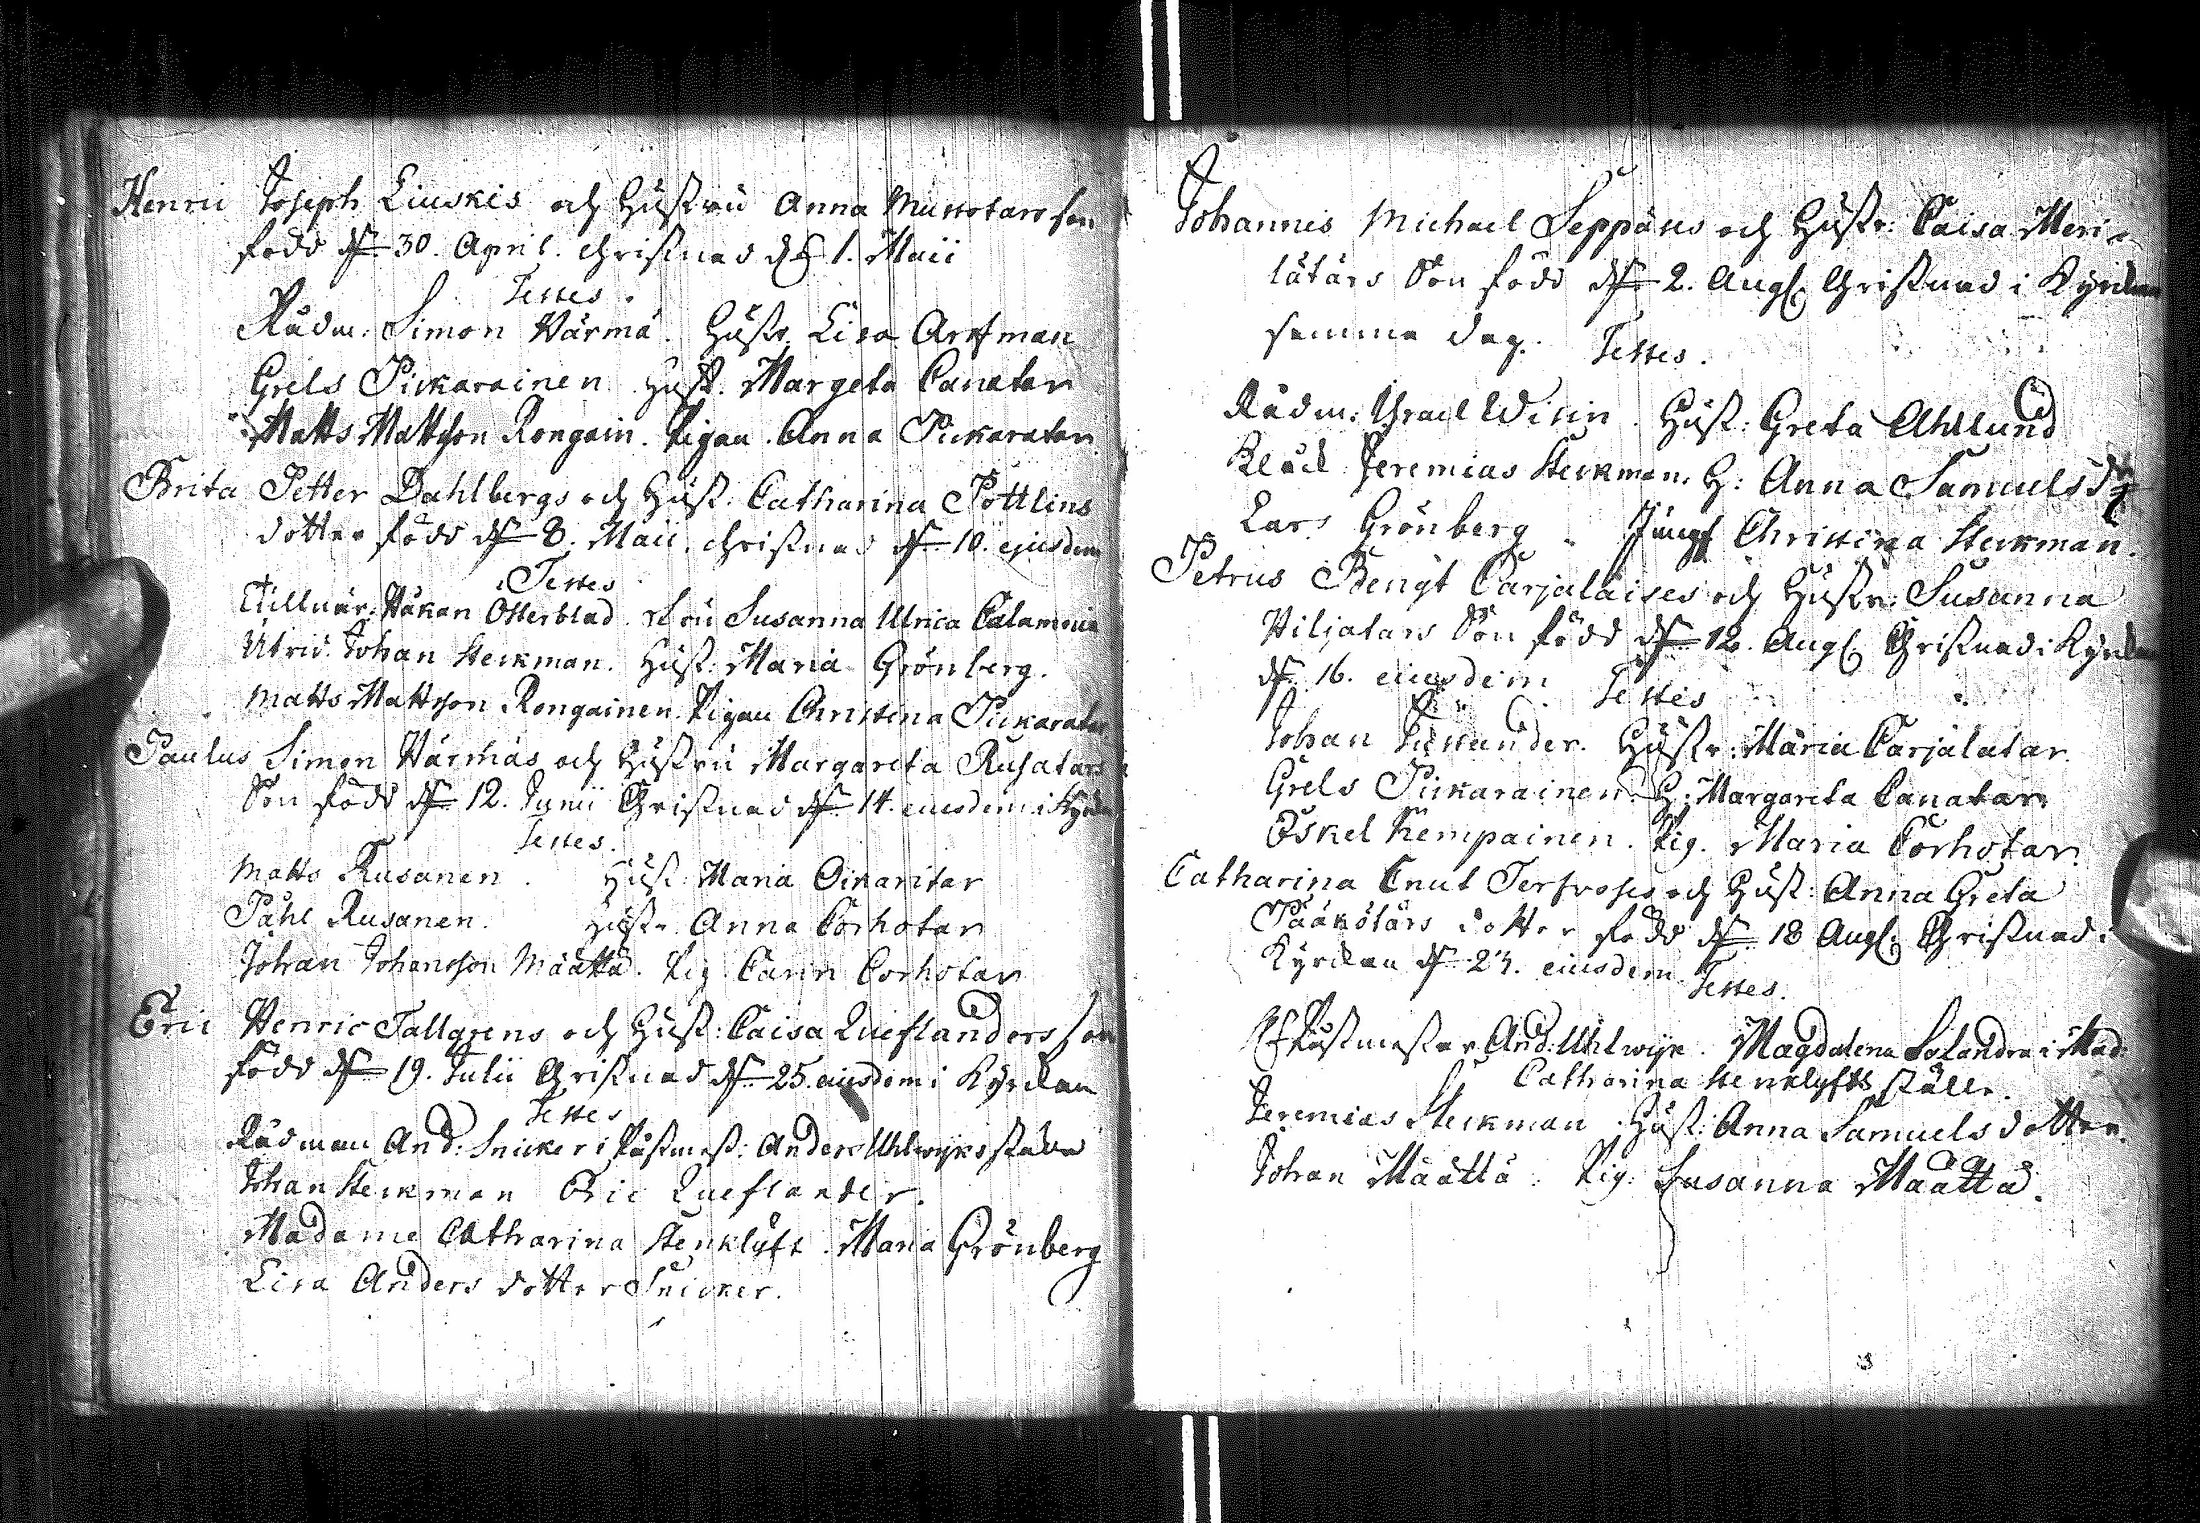 Henric Joseph Liuskis och Hustru Anna Mustotars son
född d. 30. April. christnad d. 1. Maii
Testes.
Rådm. Simon Wärmä. Hustr. Lisa Artman
Grels Pickarainen Hust. Margeta Canatar
Matts Mattsson Rongain. Pigan Anna Pickaratar
Brita Petter Dahlbergs och Hust. Catharina Pöttlins
dotter född d. 8. Maii. christnad d. 10. ejusdem
Testes
Håkan Otterblad. Fru Susanna Ulrica Calamnia
Johan Steckman. Hust. Maria Grönberg.
Matts Mattsson Rongainen. Pigan Christina Pickaratar
Paulus Simon Wärmäs och Hustru Margareta Rusatars
Son född d. 12. Junii Christnad d. 14. eiusdem i Kyrkan
Testes.
Matts Rusanen. Hust. Maria Oikaritar
Påhl Rusanen. Hustr. Anna Corhotar
Johan Johansson Määttä. Pig. Carin Corhotar
Eric Henric Tallgrens och Hust: Caisa Lueflanders son
född d. 19. Julii Christnad d. 25. eiusdem i Kyrkan
Testes
Rådman And: Snicker i Påstmest: Anders Uhlwyks ställe
Johan Steckman Eric Lueflander.
Madame Catharina Stenklyft. Maria Grönberg
Lisa Anders dotter Snicker.
Johannes Michael Seppäses och Hustr: Caisa Meri-
lätärs Son född d. 2. Aug. Christnad i Kyrkan
samma dag. Testes.
Rådm: Israel Hust: Greta Ahllund
Jeremias Steckman. H: Anna Samuelsdr
Lars Grönberg. Jungf Christina Steckman.
Petrus Bengt Carjalaises och Hustr: Susanna
Viljatars Son född d. 12. Aug. Christnad i Kyrkan
d. 16. eiusdem Testes
Johan Hustr: Maria Carjalatar.
Grels Pickarainen. H: Margareta Canatar
Eskel Kempainen. Pig. Maria Corhotar.
Catharina Cnut och Hust: Anna Greta
Pääkötärs dotter född d. 18 Aug. Christnad i
Kyrkan d. 23. eiusdem Testes.
Påstmestar And: Uhlwyk. Magdalena Solandra i Mad:
Catharina Stenklyfts ställe.
Jeremias Steckman. Hust: Anna Samuels dotter.
Johan Määttä. Pig: Susanna Määttä.